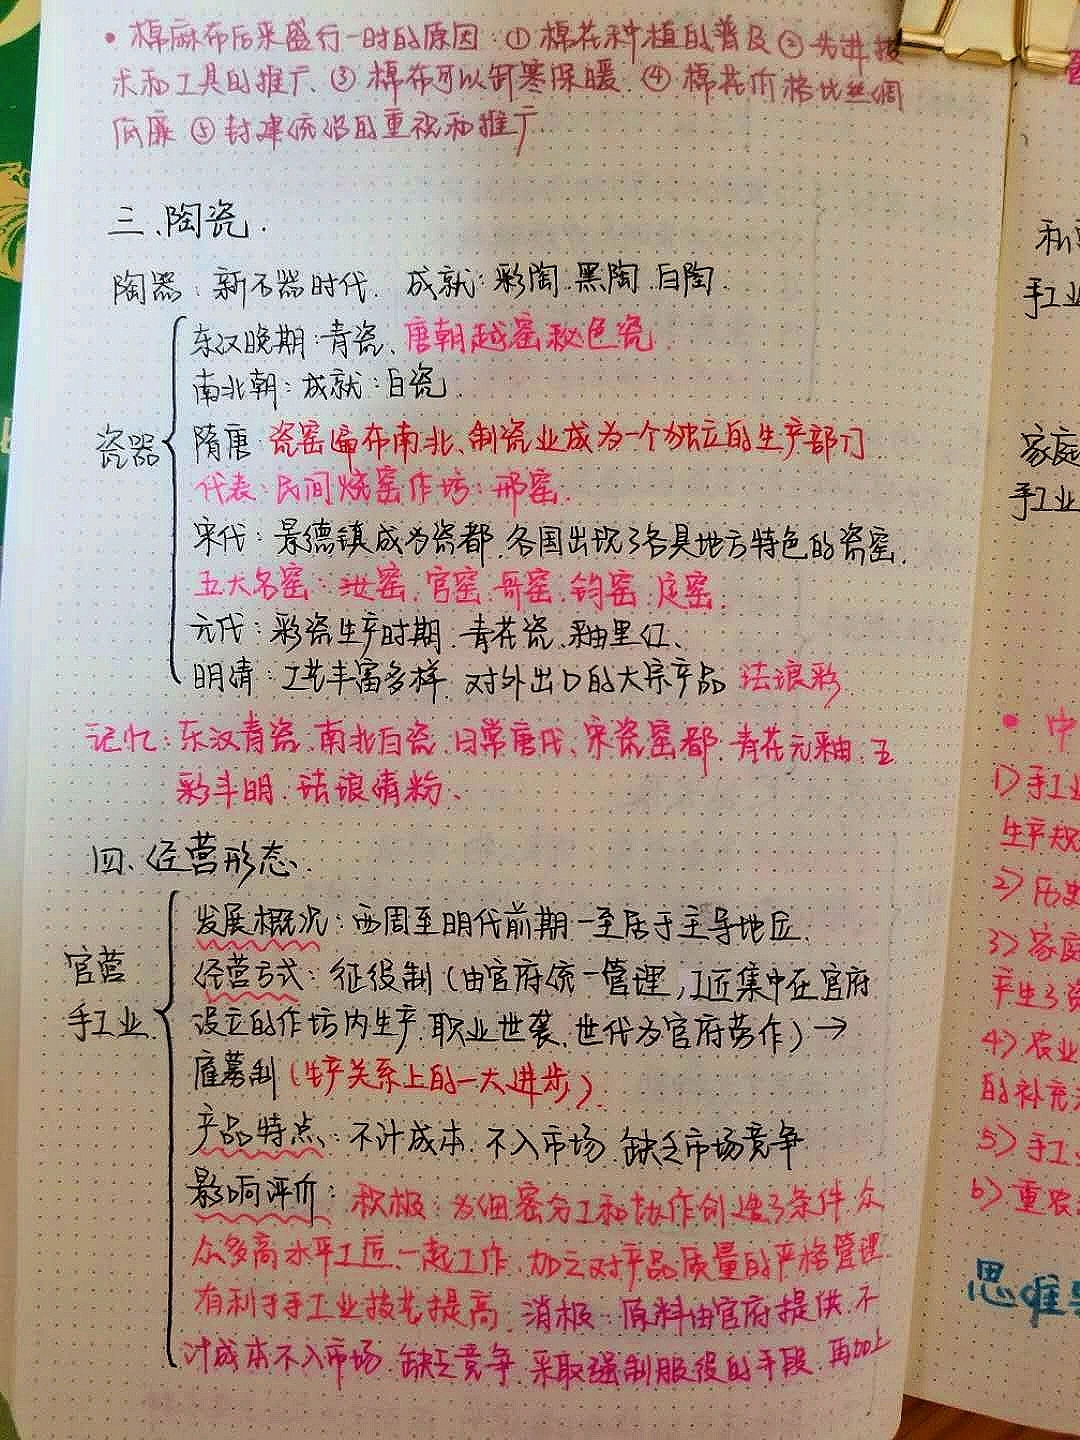 • 棉麻布后来盛行一时的原因：① 棉花种植的普及 ② 先进技
术和工具的推广、③ 棉布可以御寒保暖. ④ 棉花价格比丝绸
低廉 ⑤ 封建统治的重视和推广.
三、陶瓷.
陶器：新石器时代. 成就：彩陶.黑陶.白陶.
瓷器
东汉晚期：青瓷、唐朝越窑秘色瓷
南北朝：成就：白瓷.
隋唐：瓷窑遍布南北、制瓷业成为一个独立的生产部门.
代表：民间烧窑作坊：邢窑.
宋代：景德镇成为瓷都.各国出现了各具地方特色的瓷窑.
五大名窑：汝窑.官窑.哥窑.钧窑.定窑.
元代：彩瓷生产时期.青花瓷.釉里红、
明清：工艺丰富多样.对外出口的大宗产品 珐琅彩
记忆：东汉青瓷.南北白瓷.日常唐代、宋瓷窑都.青花元釉.五
彩斗明.珐琅清粉、
四、经营形态.
官营
手工业
发展概况：西周至明代前期一至居于主导地位.
经营方式：征役制（由官府统一管理，工匠集中在官府
设立的作坊内生产.职业世袭、世代为官府劳作）→
雇募制（生产关系上的一大进步）.
产品特点：不计成本.不入市场.缺乏市场竞争
影响评价：积极：为细密分工和协作创造了条件.众
众多高水平工匠.一起工作.加之对产品质量的严格管理
有利于手工业技艺提高.消极：原料由官府提供.不
计成本不入市场.缺乏竞争.采取强制服役的手段.再加上
手工业
家庭
手工业
• 中
1) 手工业
生产规
2) 历史
3) 家庭
产生了资
4) 农业
的补充
5) 手工
6) 重农
思维导